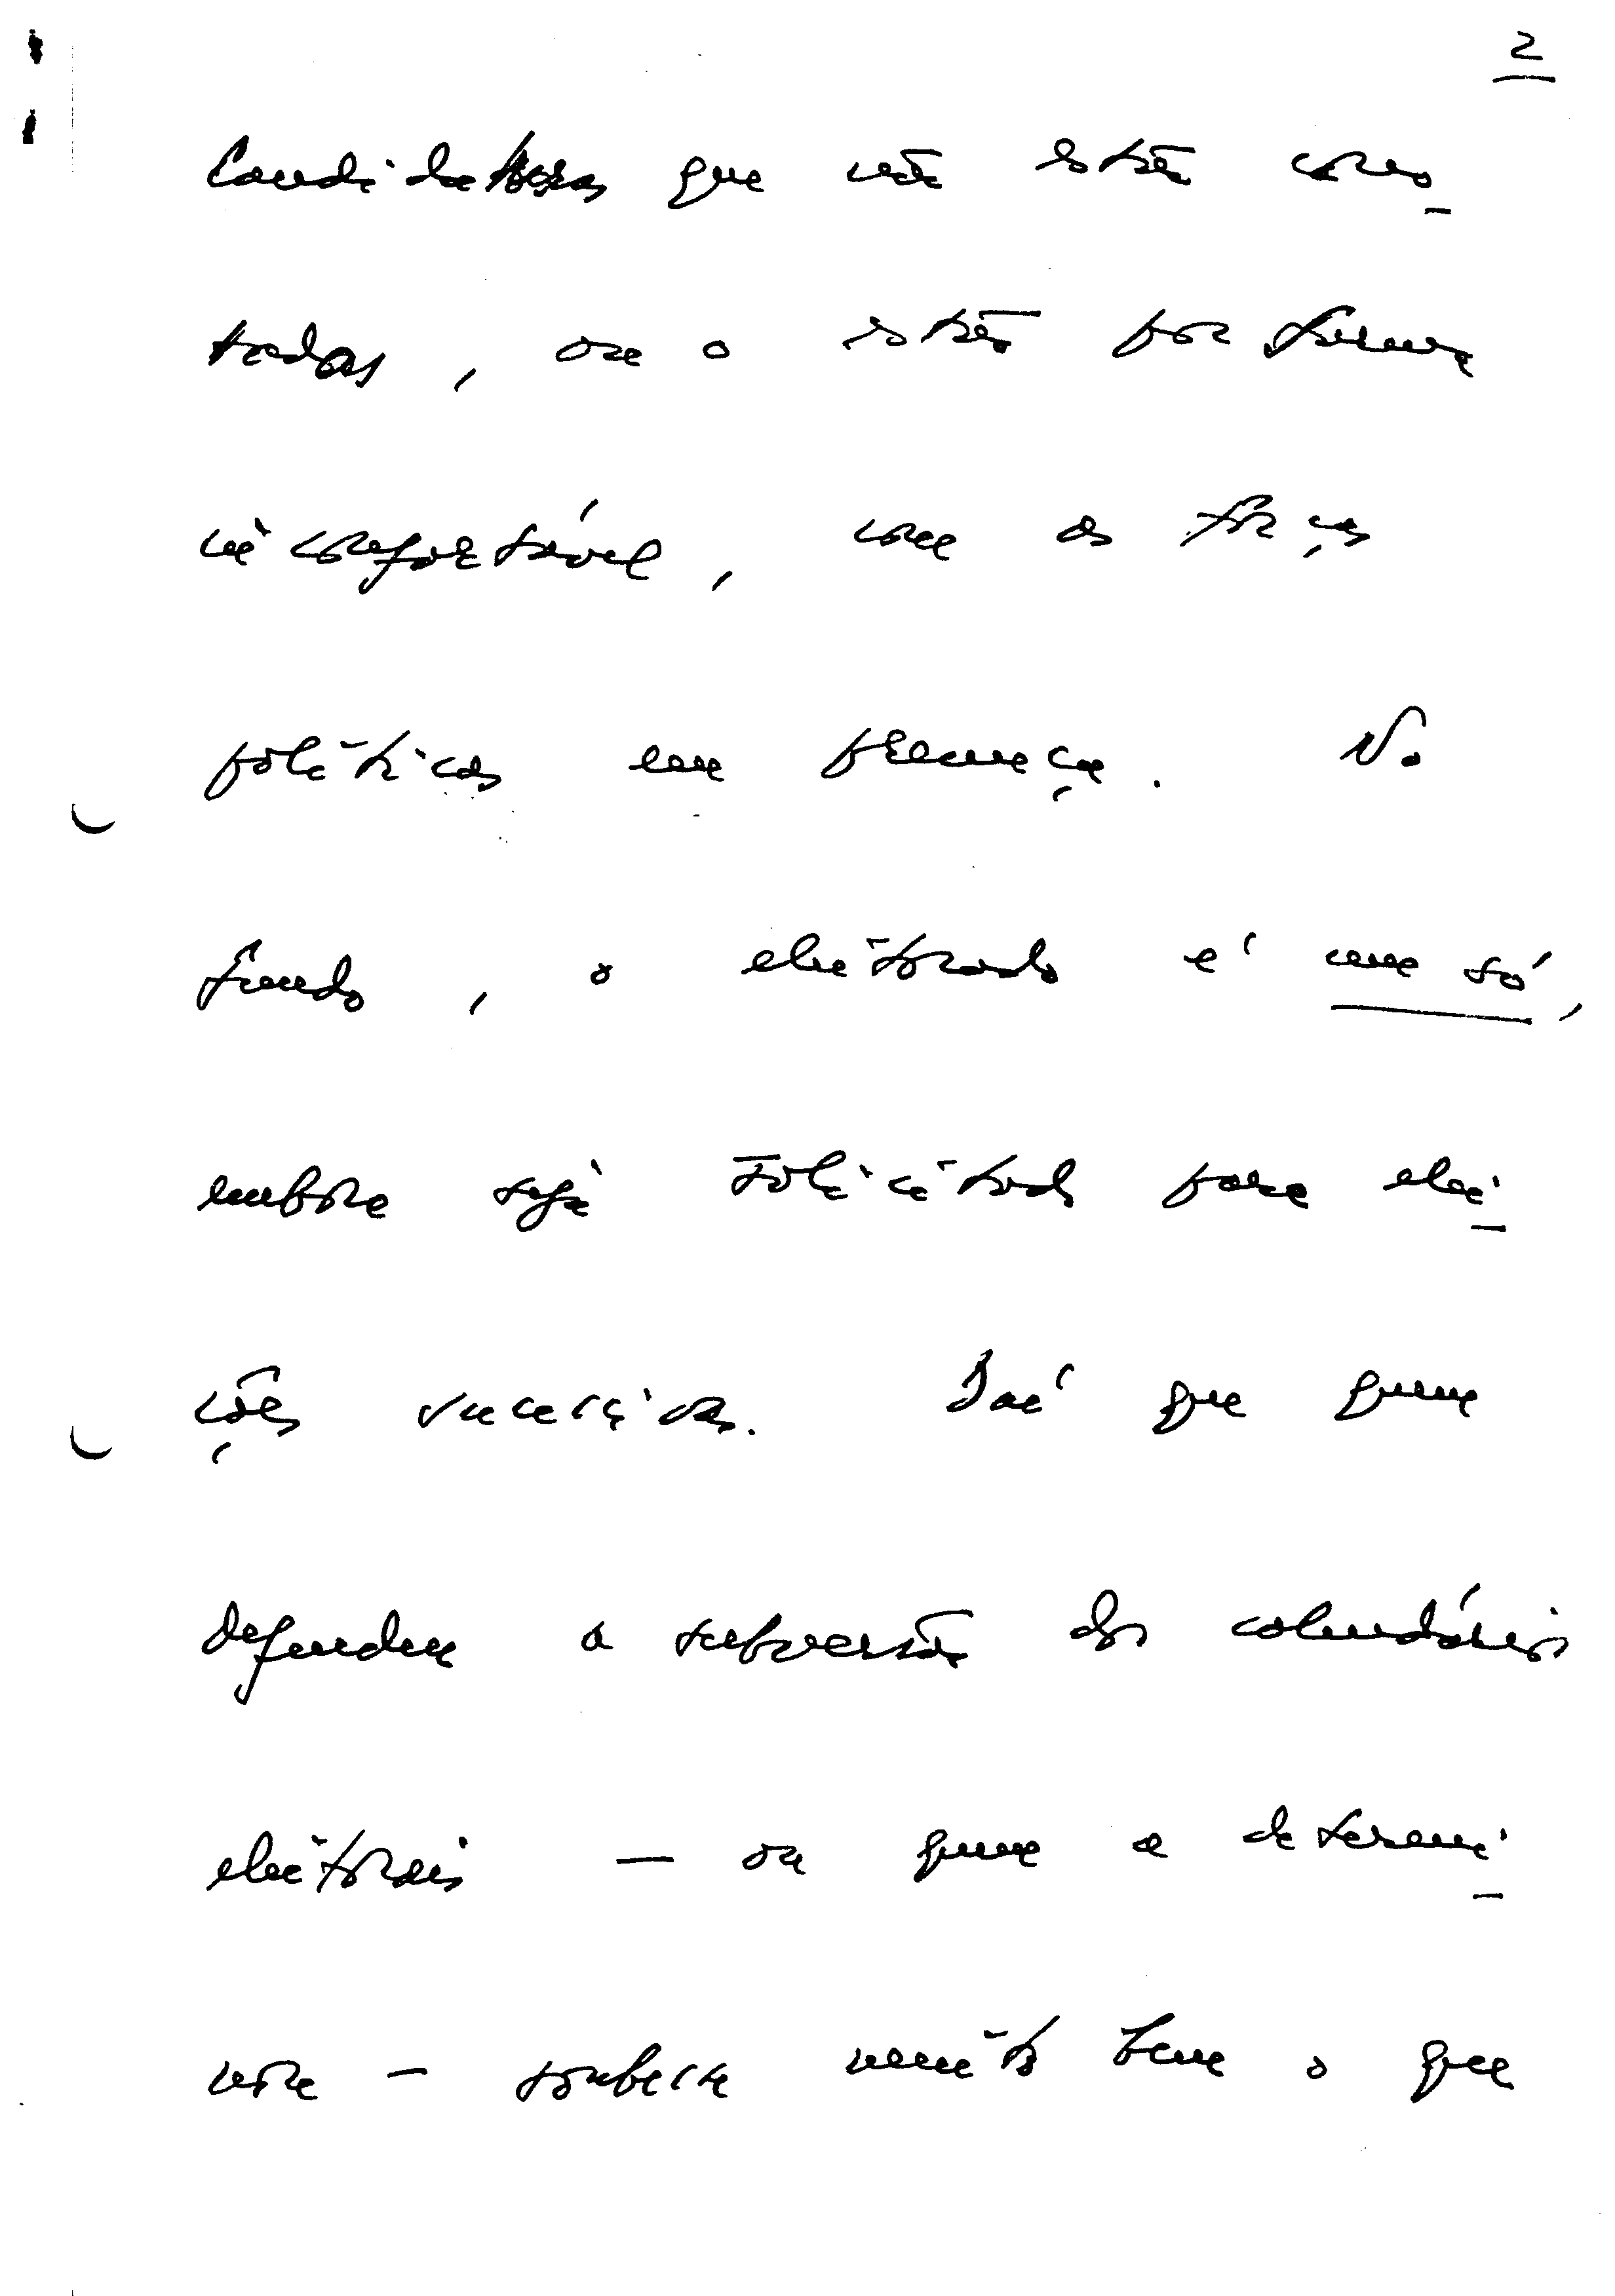 2
candidaturas que não estão cono
tadas, ou o estão por forma
inconfortável, com as forças
políticas em presença. No
fundo, o eleitorado é um só,
embora seja solicitado para elei-
ções sucessivas. Daí que quem
defendeu a subversão dos calendários
eleitorais — ou quem a determi-
nou — soubesse muito bem o que